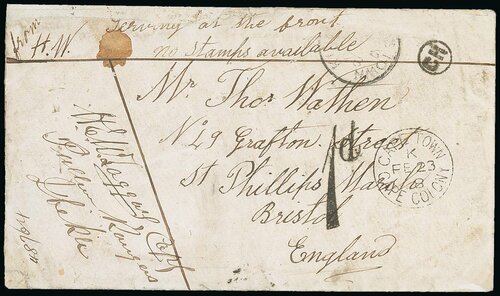 from
H.W.
Serving at the front
no stamps available
Mr Thos Wathen
No 29 Grafton Street
St Phillips Marsh
Bristol
England
1d
CAPE TOWN
K
FE 23
CAPE COLONY
Capt
Pullein Rangers